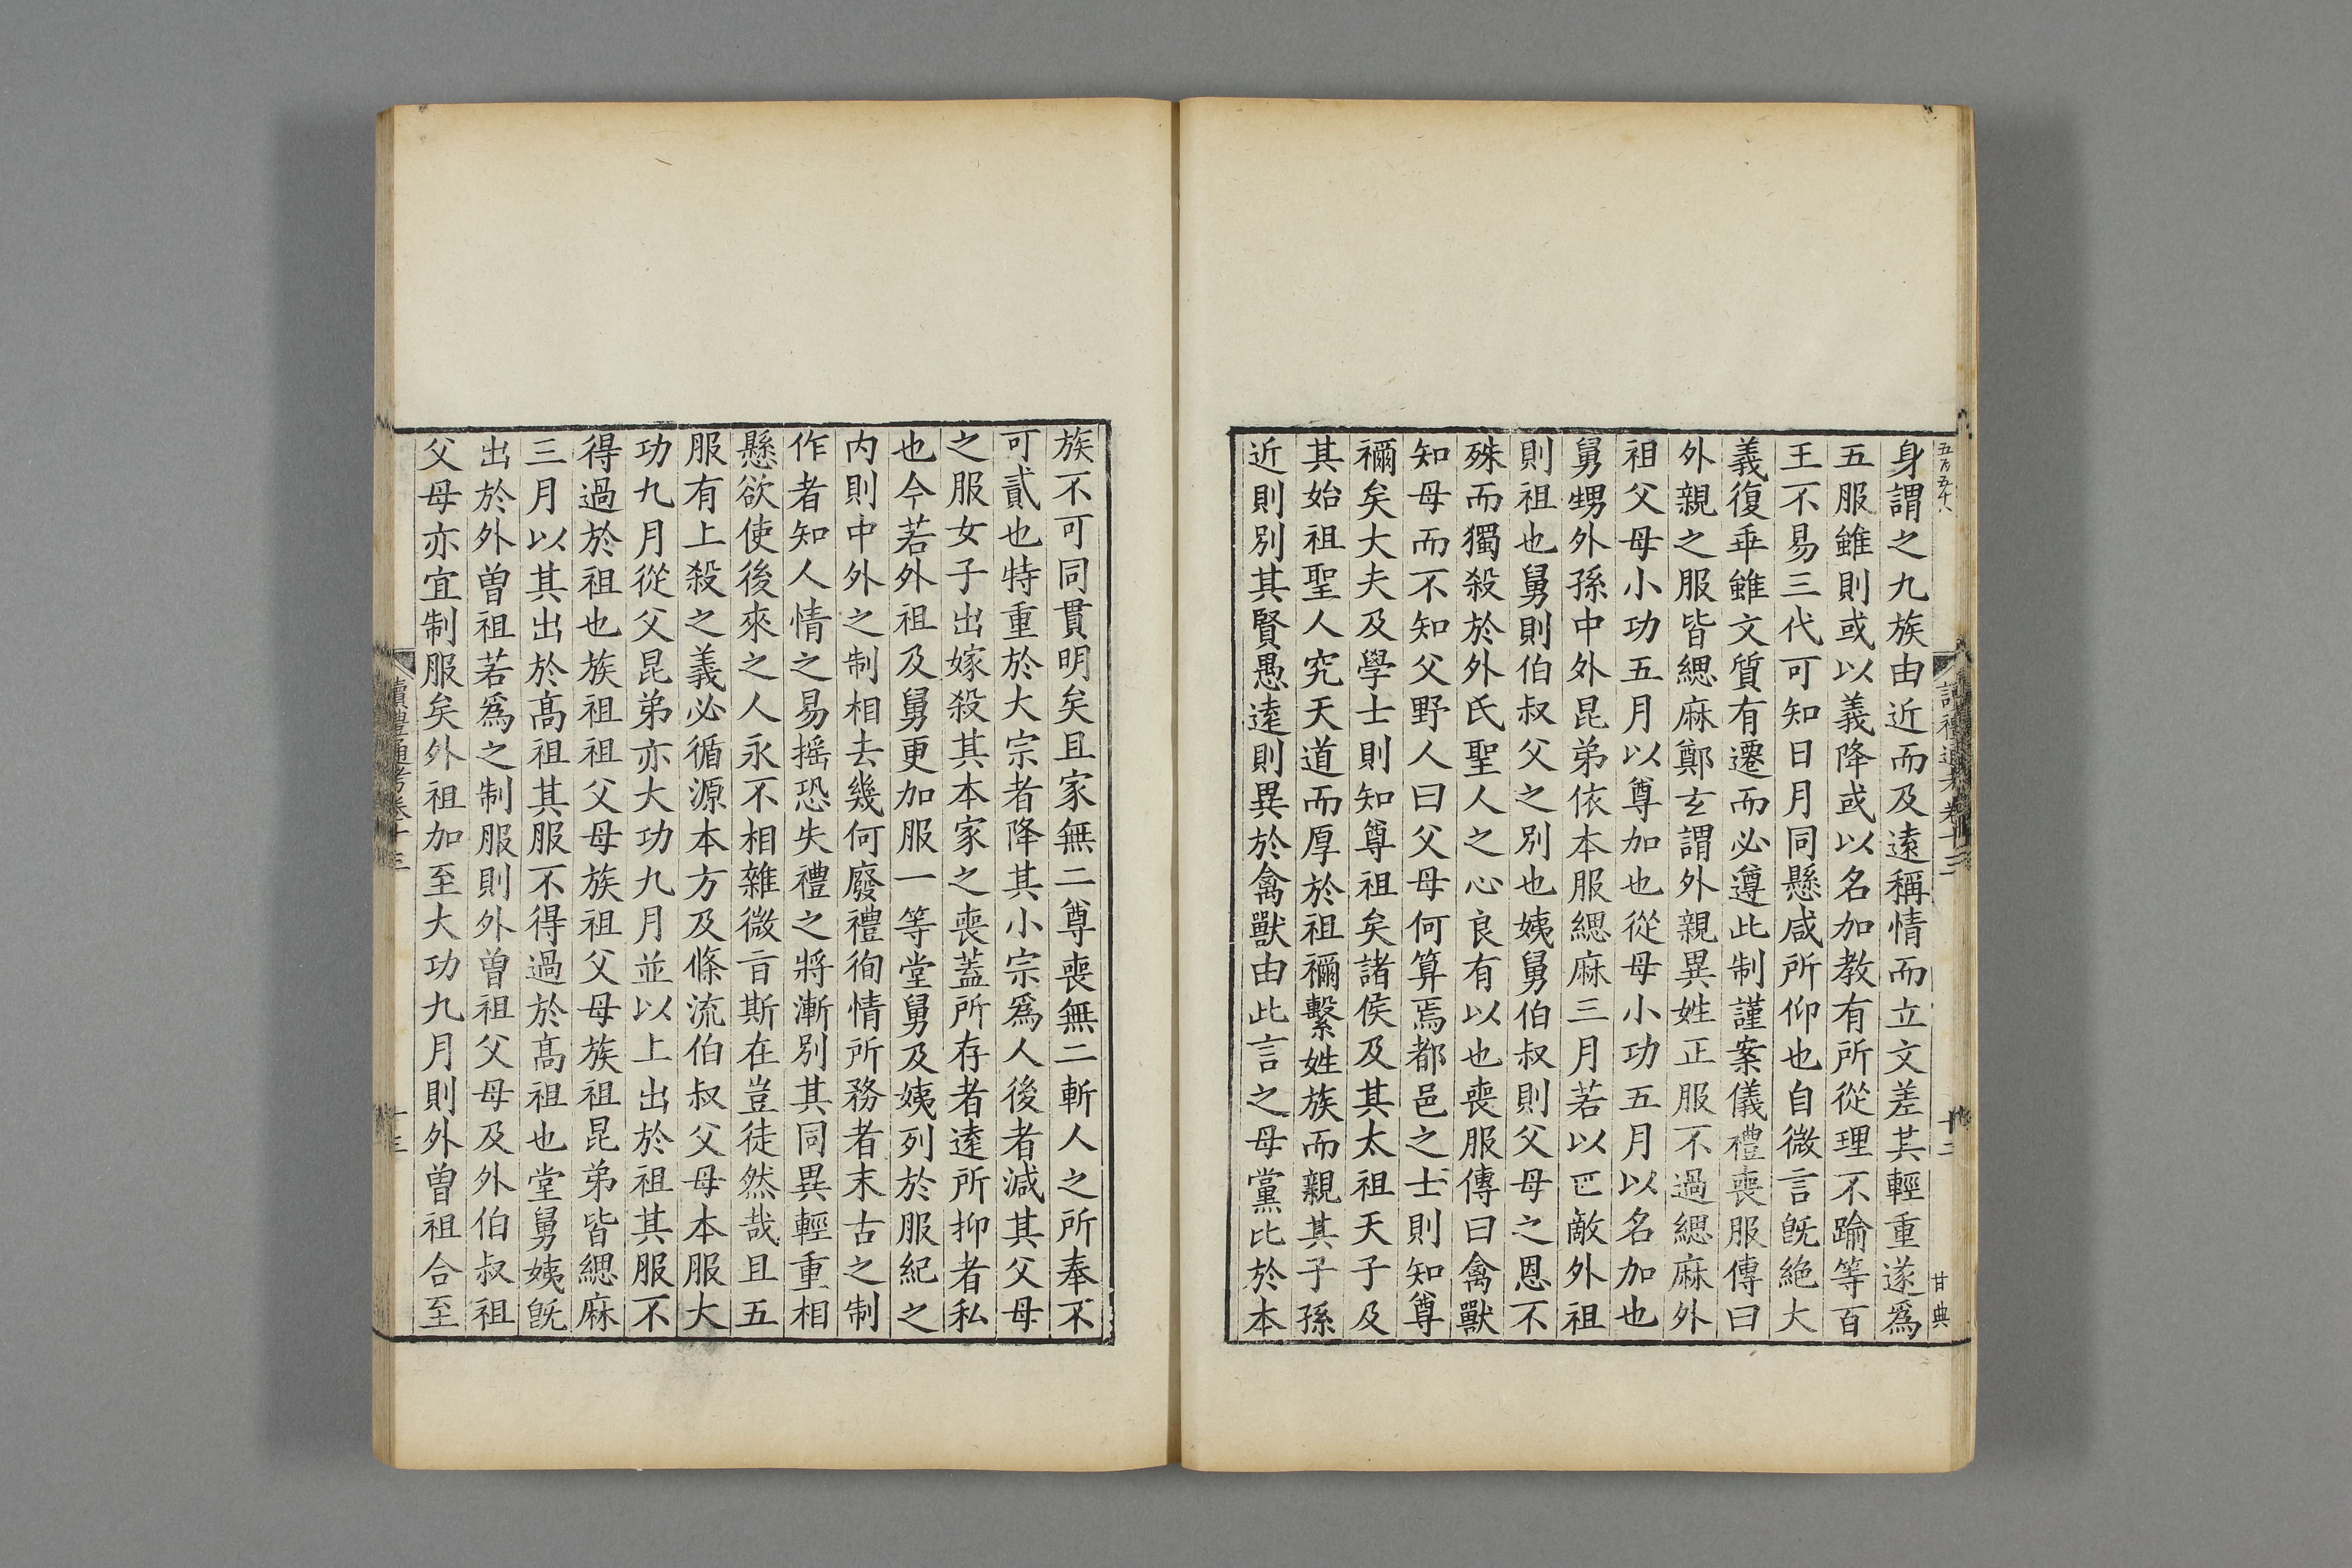 五百五十八
讀禮通考卷十三
十二
甘典
身謂之九族由近而及遠稱情而立文差其輕重遂爲
五服雖則或以義降或以名加教有所從理不踰等百
王不易三代可知日月同懸咸所仰也自微言旣絕大
義復乖雖文質有遷而必遵此制謹案儀禮喪服傳曰
外親之服皆緦麻鄭玄謂外親異姓正服不過緦麻外
祖父母小功五月以尊加也從母小功五月以名加也
舅甥外孫中外昆弟依本服緦麻三月若以匹敵外祖
則祖也舅則伯叔父之別也姨舅伯叔則父母之恩不
殊而獨殺於外氏聖人之心良有以也喪服傳曰禽獸
知母而不知父野人曰父母何算焉都邑之士則知尊
禰矣大夫及學士則知尊祖矣諸侯及其太祖天子及
其始祖聖人究天道而厚於祖禰繫姓族而親其子孫
近則別其賢愚遠則異於禽獸由此言之母黨比於本
族不可同貫明矣且家無二尊喪無二斬人之所奉不
可貳也特重於大宗者降其小宗爲人後者減其父母
之服女子出嫁殺其本家之喪蓋所存者遠所抑者私
也今若外祖及舅更加服一等堂舅及姨列於服紀之
内則中外之制相去幾何廢禮徇情所務者末古之制
作者知人情之易搖恐失禮之將漸別其同異輕重相
懸欲使後來之人永不相雜微旨斯在豈徒然哉且五
服有上殺之義必循源本方及條流伯叔父母本服大
功九月從父昆弟亦大功九月並以上出於祖其服不
得過於祖也族祖祖父母族祖父母族祖昆弟皆緦麻
三月以其出於高祖其服不得過於高祖也堂舅姨旣
出於外曾祖若爲之制服則外曾祖父母及外伯叔祖
父母亦宜制服矣外祖加至大功九月則外曾祖合至
讀禮通考卷十三
十三